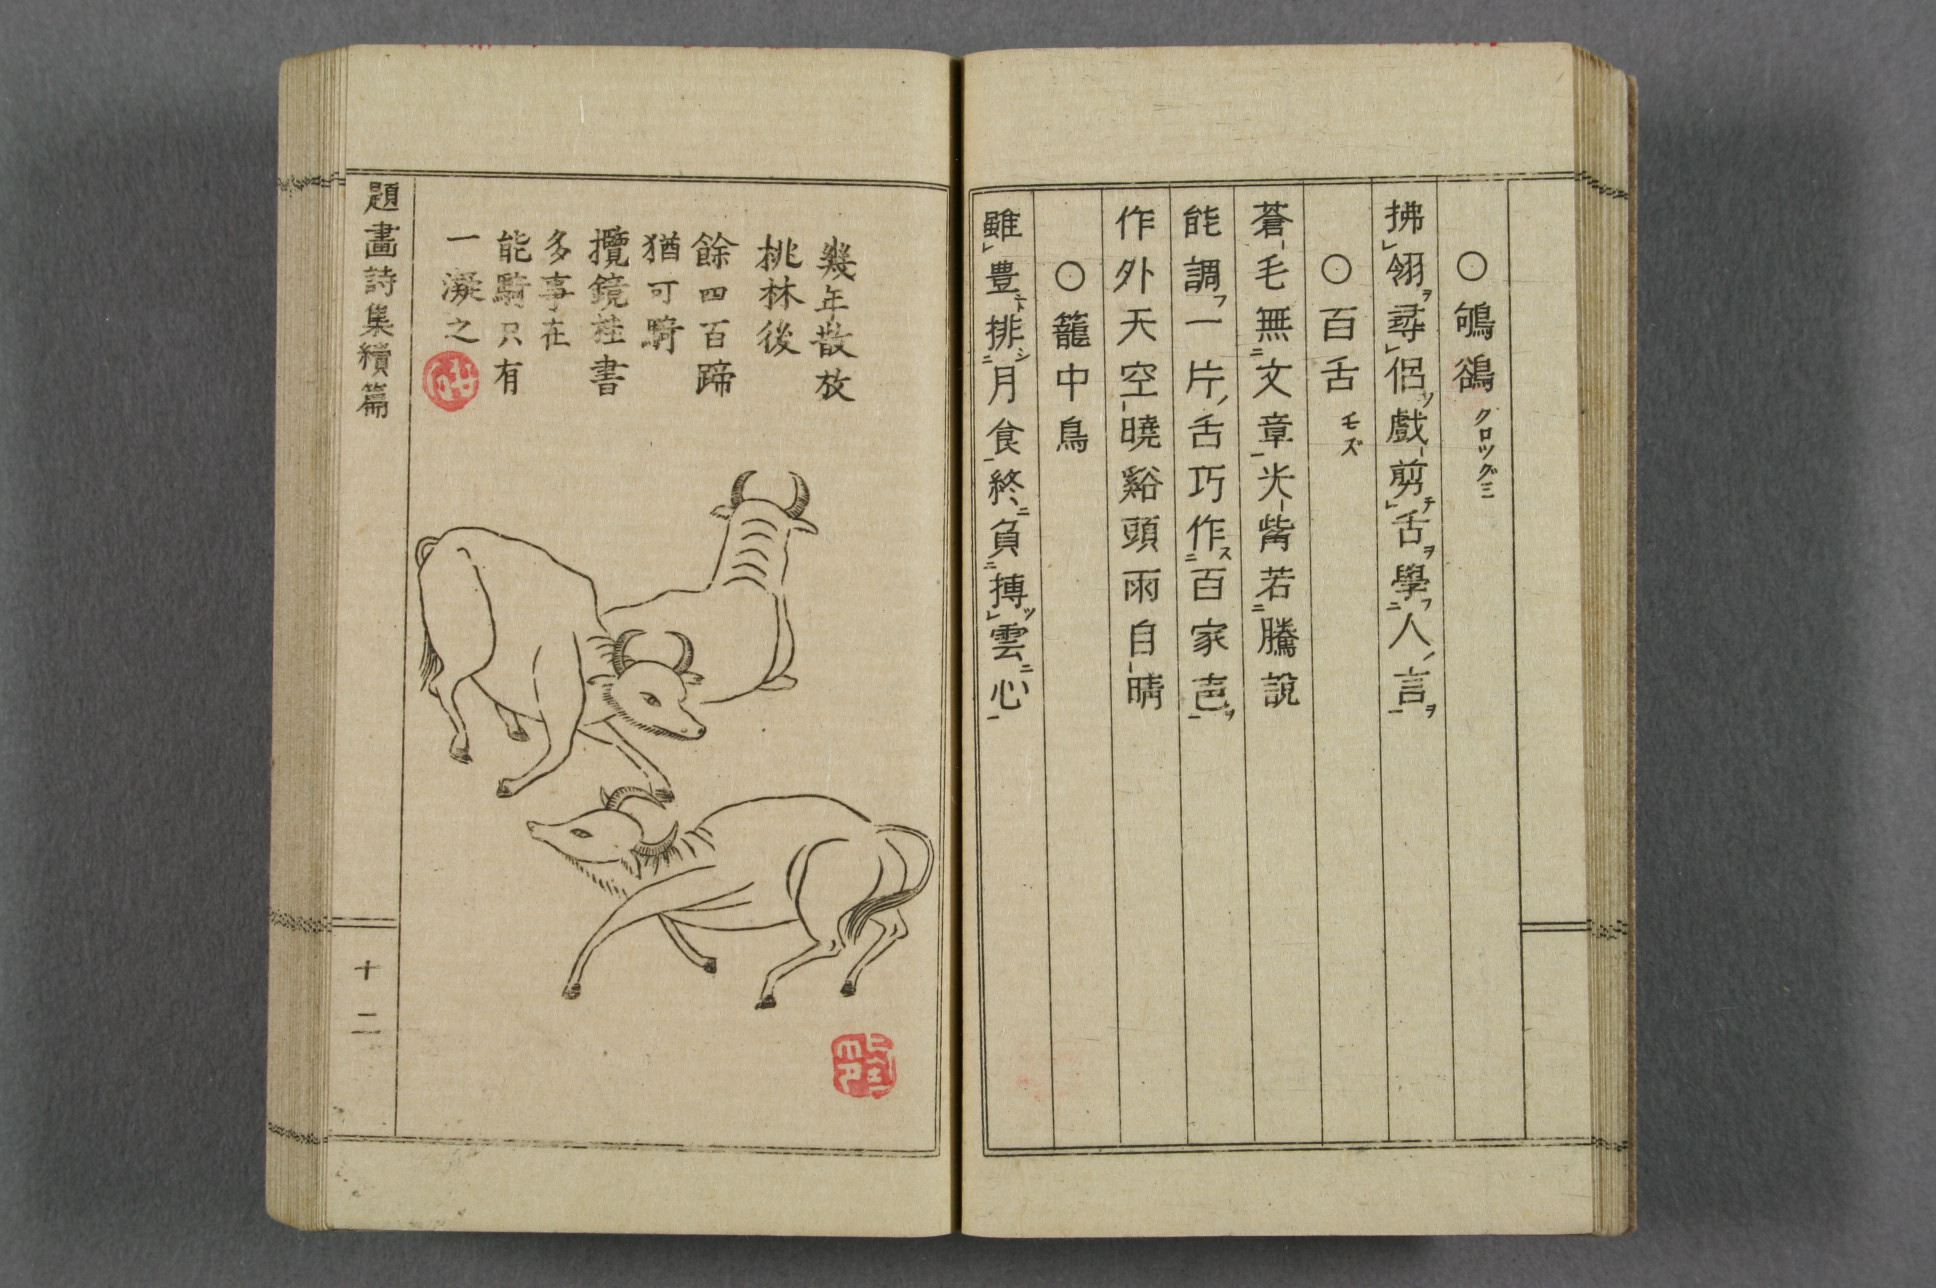 ○鴝鵒 クロツグミ
拂翎尋侶戲剪舌學人言
○百舌 モズ
蒼毛無文章尖觜若騰說
能調一片舌巧作百家
作外天空曉谿頭雨自晴
○籠中鳥
雖豊排月食終負摶雲心
幾年散放
桃林後
餘四百蹄
猶可騎
攬鏡挂書
多事在
能騎只有
一凝之
題畫詩集續篇
十二